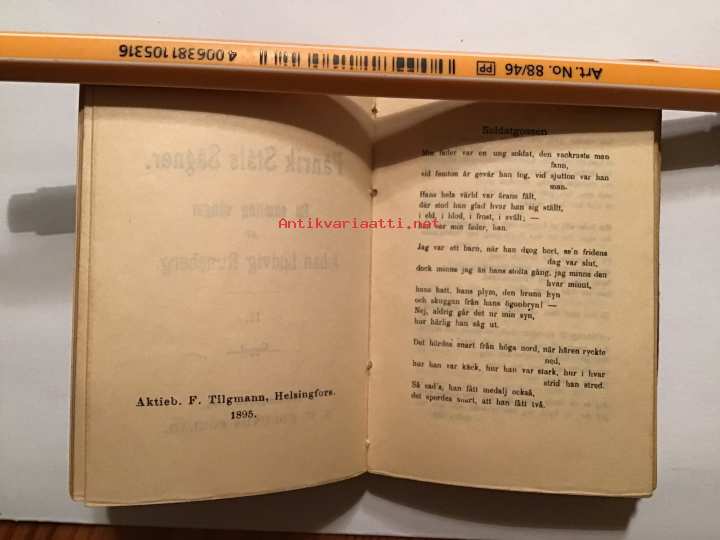 Art. No. 88/46 PP 4 006381 105316
Antikvariaatti.net
Aktieb. F. Tilgmann, Helsingfors.
1895.
Soldatgossen
Min fader var en ung soldat, den vackraste man
fann,
vid femton år gevär han tog, vid sjutton var han
man.
Hans hela värld var ärans fält,
där stod han glad hvar han sig ställt,
i eld, i blod, i frost, i svält; —
var min fader, han.
Jag var ett barn, när han drog bort, se'n fridens
dag var slut,
dock minns jag än hans stolta gång, jag minns den
hvar minut,
hans hatt, hans plym, den bruna hyn
och skuggan från hans ögonbryn! —
Nej, aldrig går det ur min syn,
hur härlig han såg ut.
Det hördes snart från höga nord, när hären ryckte
ned,
hur han var käck, hur han var stark, hur i hvar
strid han stred.
Så sad's, han fått medalj också,
det spordes snart, att han fått två.